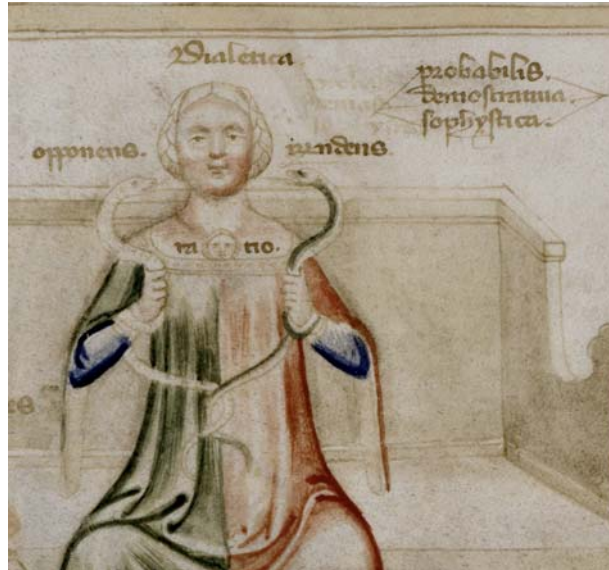 Dialetica.
probabilis.
demostratiua.
sophystica.
opponens.
ra tio.